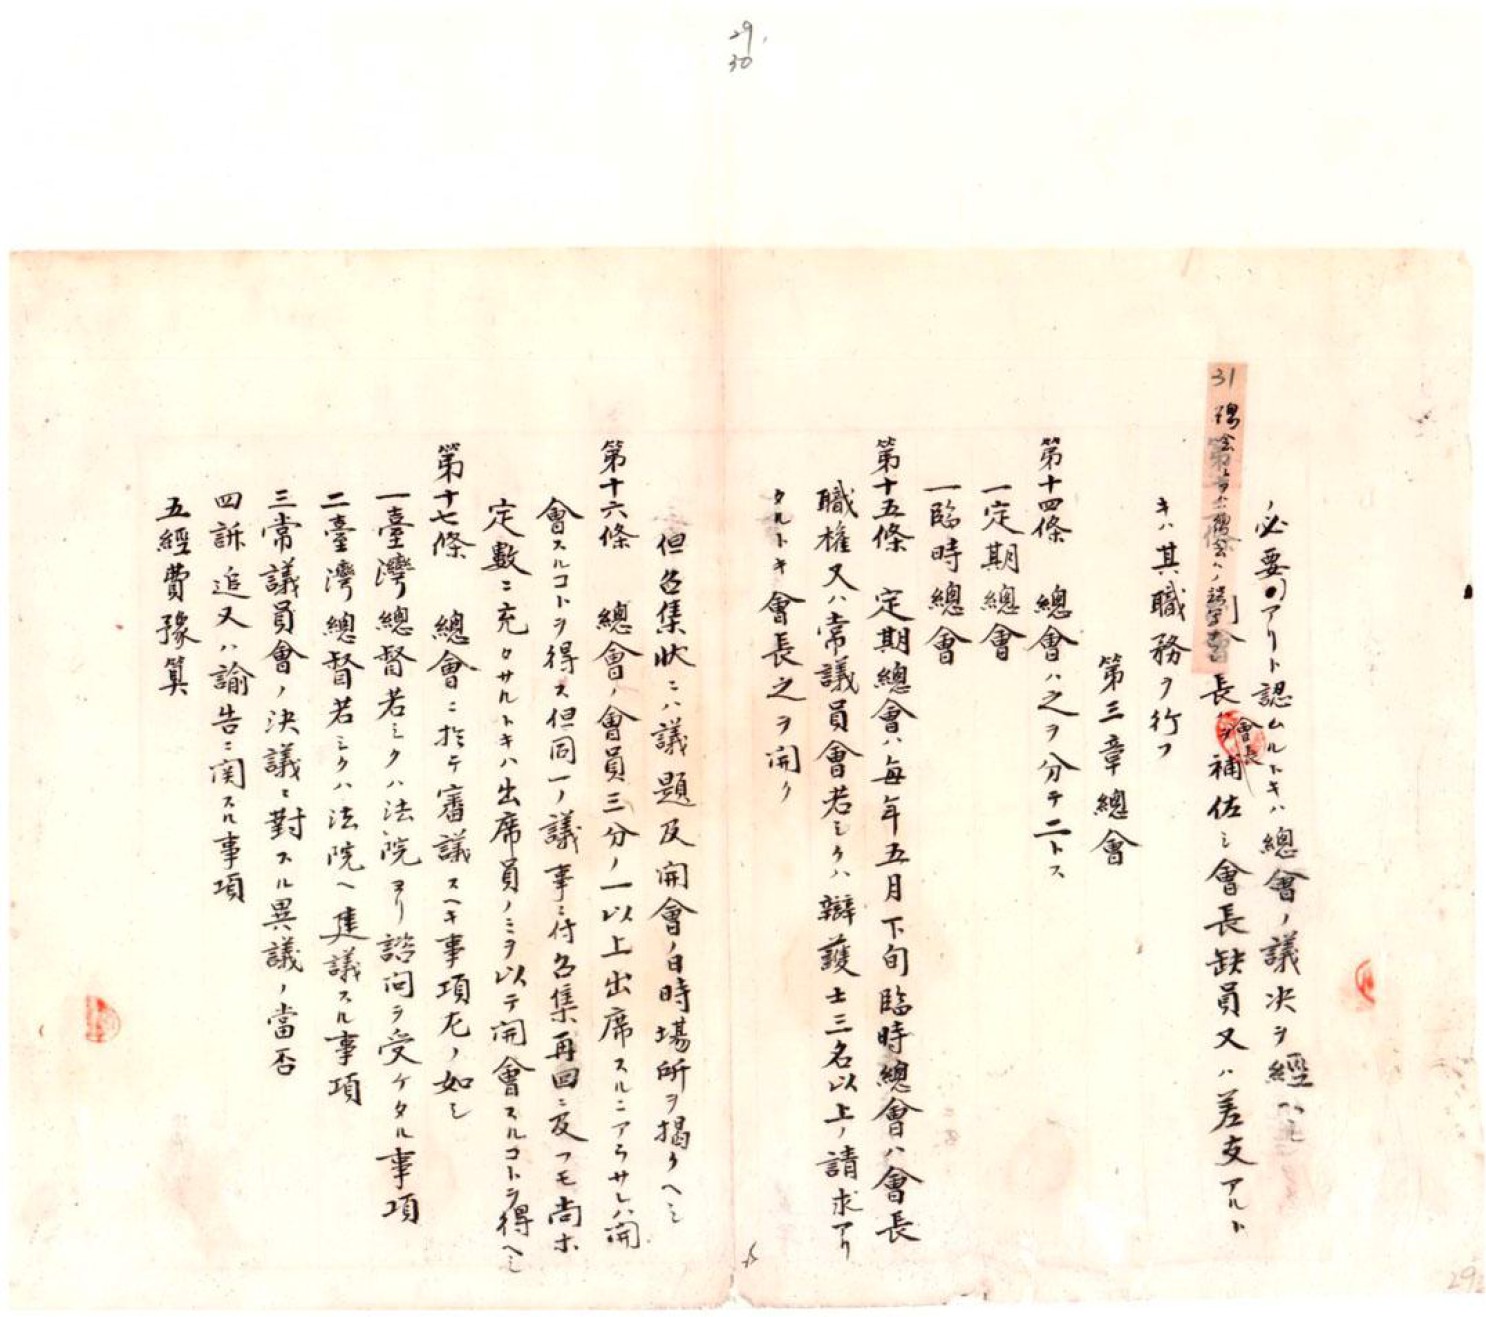 29.
30
ノ必要アリト認ムルトキハ總會ノ議決ヲ經ヘシ
31
長ヲ補佐シ會長缺員又ハ差支アルト
會長
キハ其職務ヲ行フ
第三章總會
第十四條 總會ハ之ヲ分テ二トス
一定期總會
一臨時總會
第十五條 定期總會ハ每年五月下旬臨時總會ハ會長
職權又ハ常議員會若シクハ辯護士三名以上ノ請求アリ
タルトキ會長之ヲ開ク
但召集狀ニハ議題及開會ノ日時場所ヲ揭クヘシ
第十六條 總會ハ會員三分ノ一以上出席スルニアラサレハ開
會スルコトヲ得ス但同一ノ議事ニ付召集再回ニ及フモ尚ホ
定數ニ充タサルトキハ出席員ノミヲ以テ開會スルコトヲ得ヘシ
第十七條 總會ニ於テ審議スヘキ事項左ノ如シ
一臺灣總督若シクハ法院ヨリ諮問ヲ受ケタル事項
二臺灣總督若シクハ法院ヘ建議スル事項
三常議員會ノ決議ニ對スル異議ノ當否
四訴追又ハ諭告ニ関スル事項
五經費豫算
29